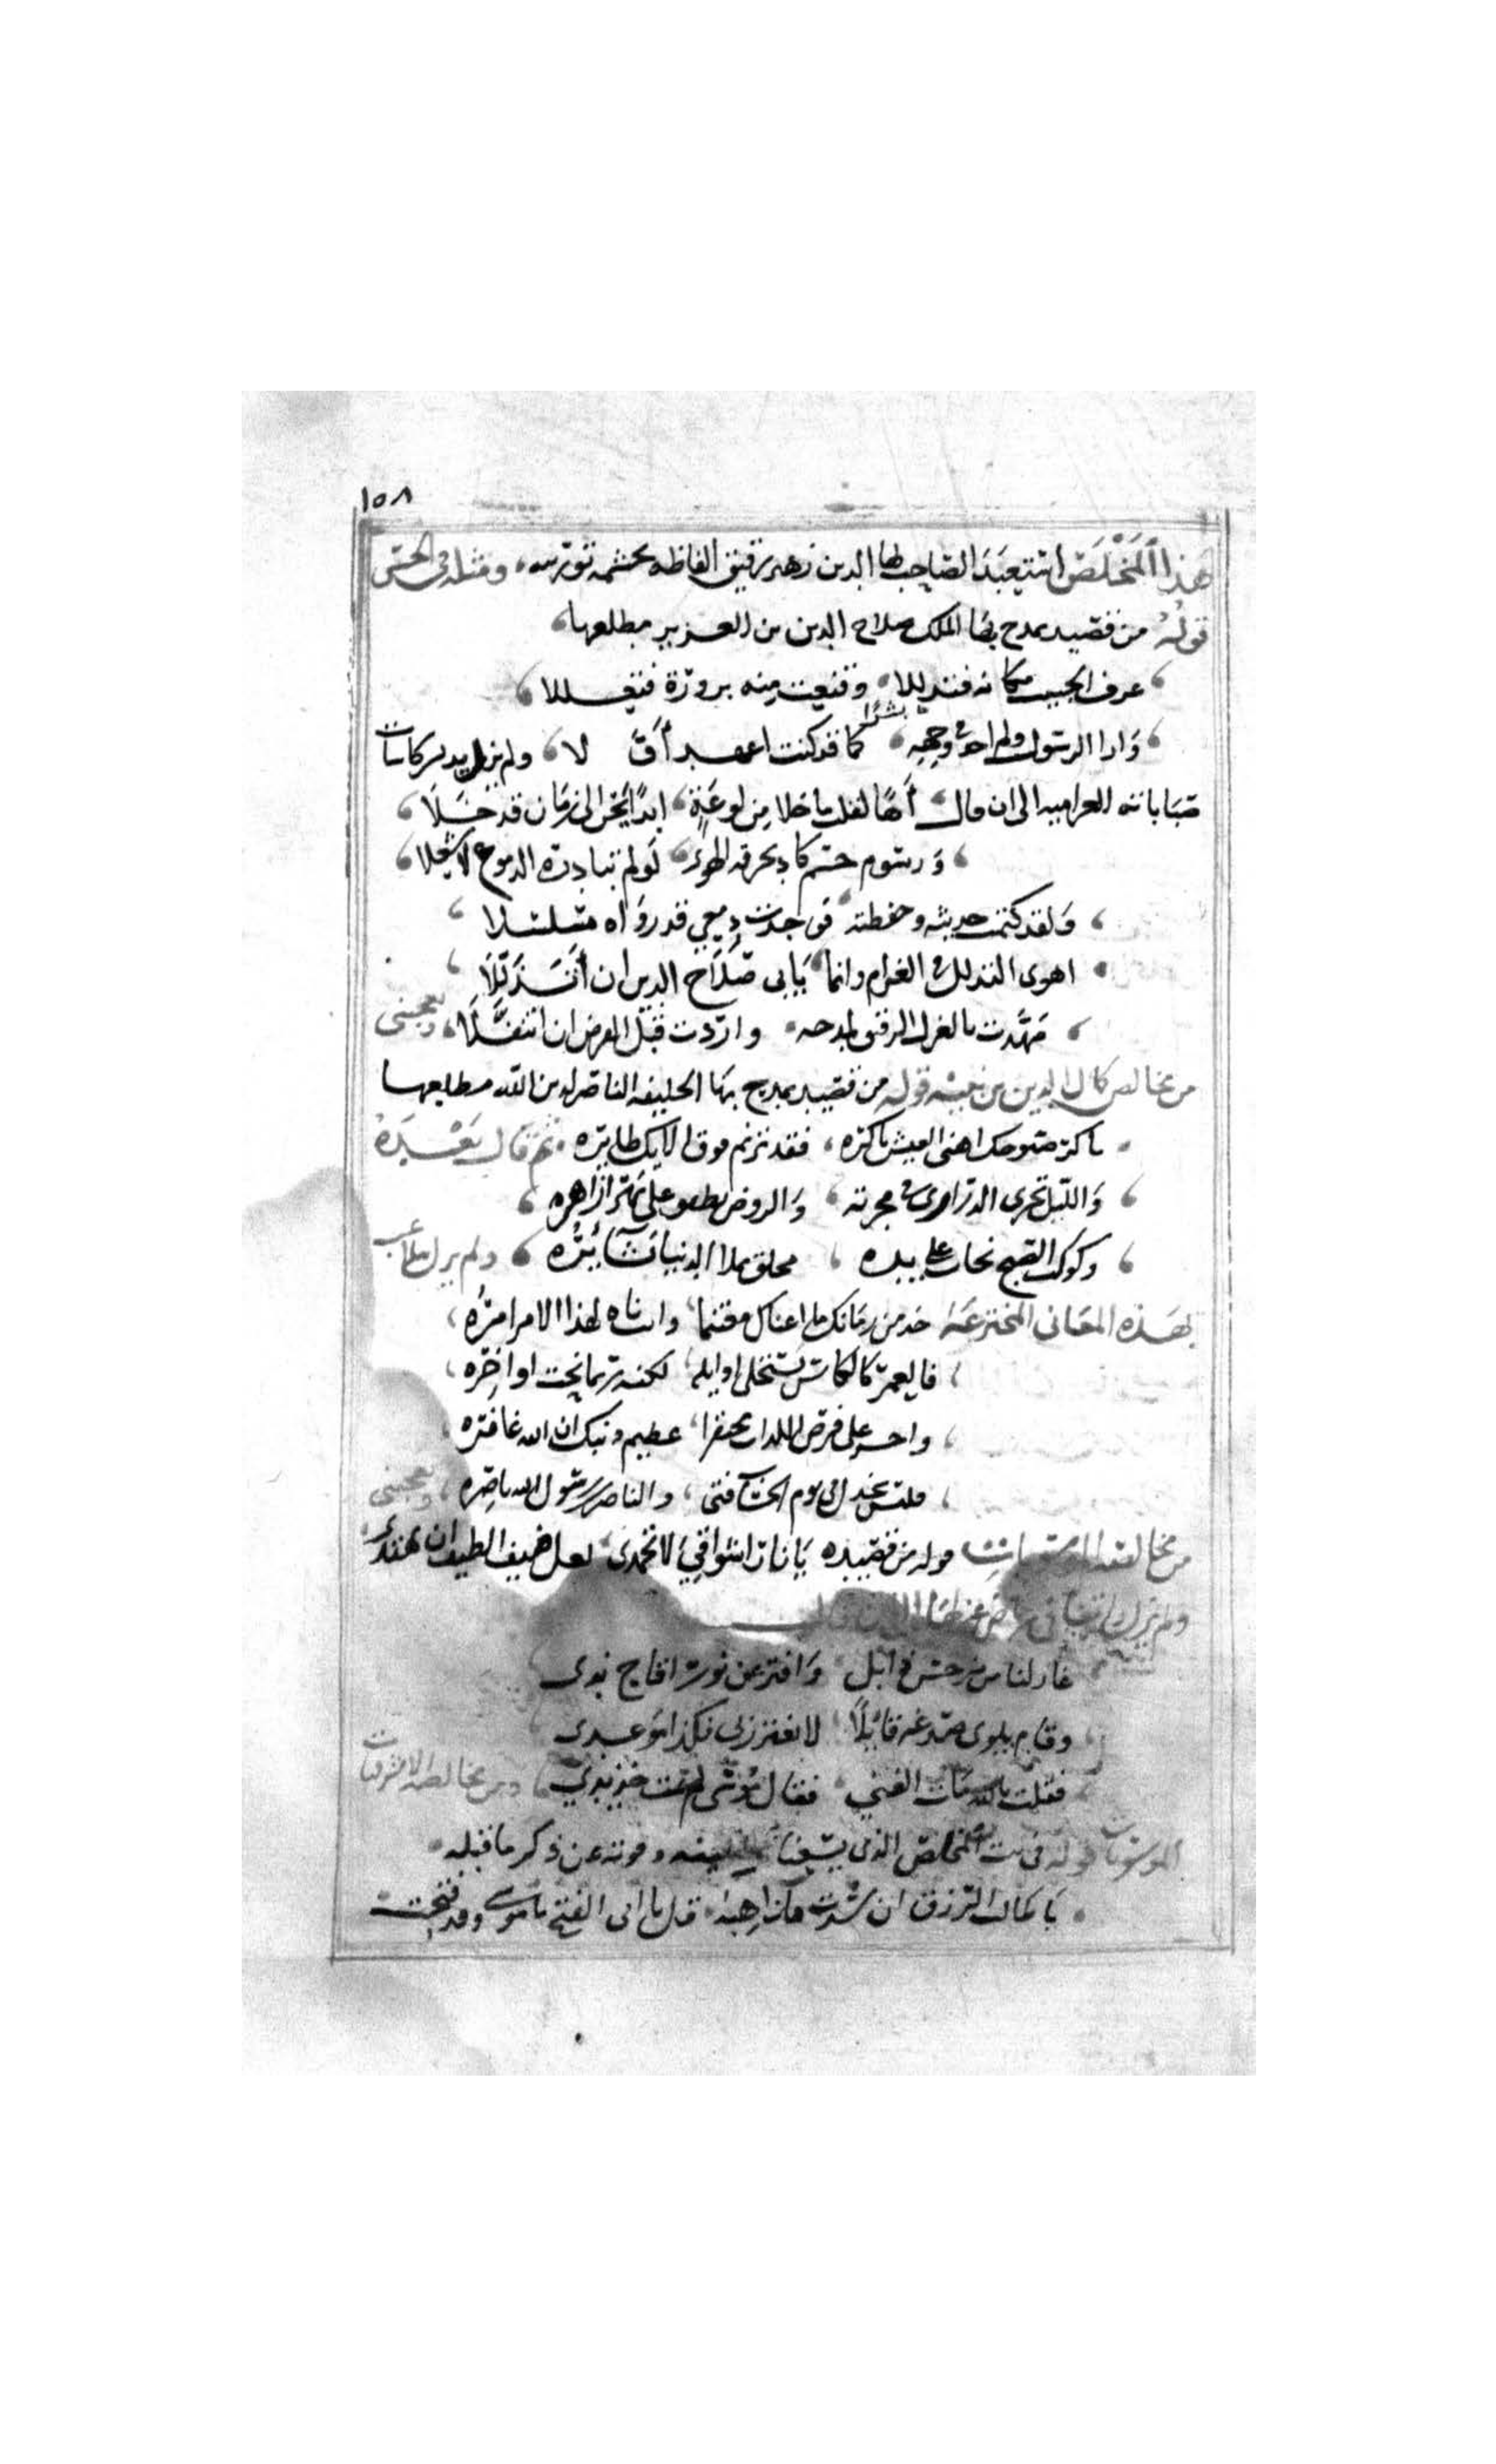 ١٥٨
هذا المَخْلَصْ استعبَدَ الصّاحب بها الدين زهير برقيق الفاظه بحشمة توريته، ومثله في الحسن
قوله من قصيد يمدح بها الملك صلاح الدين بن العزيز مطلعها،
عرف الحبيب مكانه فتدللا، وقنعت منه بزورة فتعللا
وَاتا الرسول ولم اجد في وجهه، بشرا كما قد كنت اعهد أَوّلا، ولم يزل يدير كاسات
صَبَاباته الغرامية الى ان قال، أهًا لقلب ما خلا مِن لوعَةٍ، ابدًا يَحن الى زمَان قد خَلَا،
وَرسوم جسم كاد يحرقه الهوى، لَو لم تبادره الدموع لاشعلا،
وَلقد كتمت حديثه وحفظته، فوجدت دمعي قد روَاه مسلسلا
اهوى التذلل في الغرام وانما، يَابى صَلَاح الدين ان أَتَذَلّلَا
مَهّدت بالغزل الرقيق لمدحه، واردت قبْل الفرض ان اتنفَّلَا، ويعجبني
من مخالص كمال الدين بن نبيه قوله من قصيد يمدح بهَا الخليفه الناصر لدين الله مطلعها
باكر صبوحك اهنى العيش باكره، فقد ترنم فوق الايك طايره، ثم قال بَعْدَهُ
وَالليل تجري الدراري في مجرته، وَالروض يطفو على نهر ازاهره،
وكوكب الصبح نجاب على يده، مخلق تملا الدنيا بَشَآئِرُه، ولم يزل يتلاعب
بهَذه المعَاني المخترعَة خذ من زمَانك ما اعطاك مغتنما، وانت ناه لهذا الامر امرُه،
فالعمر كالكاس تستحلى اوايله، لكنه ربما مجت اواخِره،
واجسر على فرص اللذات محتقرا، عظيم ذنبك ان الله غافره،
فليس يخذل في يوم الحساب فتى، والناصر ابن رسول الله ناصِره، ويعجبني
من مخالصه قوله من قصيده يَا نار اشواقِي لا تخمدي، لعل ضيف الطيف ان يهتدي
ولم يزل
غازلنا من نرجس ذابل، وَافتر عن نور اقاح ندى
وقام يلوى صدغه قائِلًا، لا تغترر بي فكذا مَوعدي
فقلت يالله مَات الفتي، فقال مُوسَى لم تمت خذ بيدي، ومن مخالصه الاشرفيات
الموسويات قوله في بيت المخلص الذي يستغنا وقوته عن ذكر ما قبله،
يَا طالب الرزق ان سُدت مذاهبه، قل يا ابى الفتح يا موسى وقد فتحت